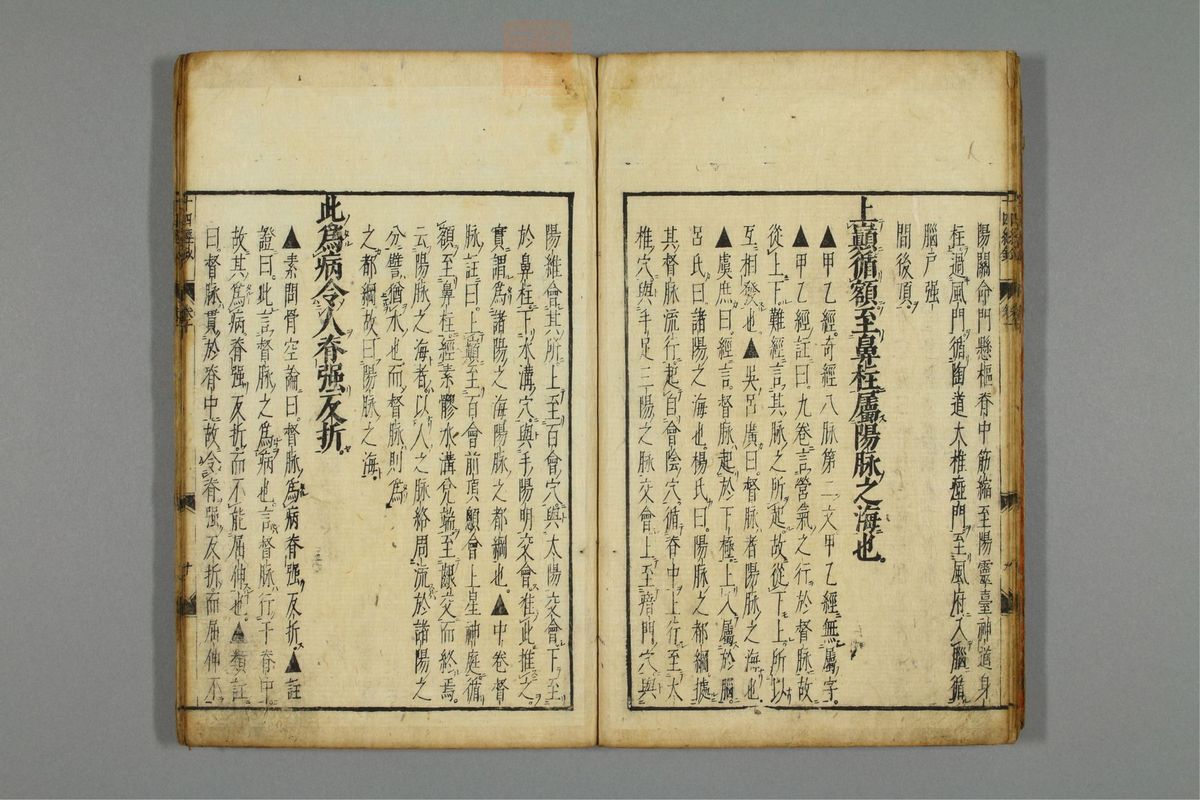 陽關命門懸樞脊中筋縮至陽靈臺神道身
柱過風門循陶道大椎瘂門至風府入腦循
腦戸強
間後頂
上巓循額至鼻柱屬陽脉之海也
▲甲乙經奇經八脉第二文甲乙經無屬字
▲甲乙經註曰九卷言營氣之行於督脉故
從上下難經言其脉之所起故從下上所以
互相發也▲吳呂廣曰督脉者陽脉之海也
▲虞庶曰經言督脉起於下極上入屬於腦
呂氏曰諸陽之海也楊氏曰陽脉之都綱據
其督脉流行起自會陰穴循脊中上行至大
椎穴與手足三陽之脉交會上至瘖門穴與
陽維會其所上至百會穴與太陽交會下至
於鼻柱下水溝穴與手陽明交會准此推之
實謂為諸陽之海陽脉之都綱也▲中卷督
脉註曰上巓至百會前頂顖會上星神庭循
額至鼻柱經素髎水溝兌端至齦交而終焉
云陽脉之海者以人之脉絡周流於諸陽之
分譬猶水也而督脉則為
之都綱故曰陽脉之海
此為病令人脊强反折
▲素問骨空論曰督脉為病脊强反折▲註
證曰此言督脉之為病也言督脉行于脊中
故其為病脊强反折而不能屈伸也▲類註
曰督脉貫於脊中故令脊强反折而屈伸不